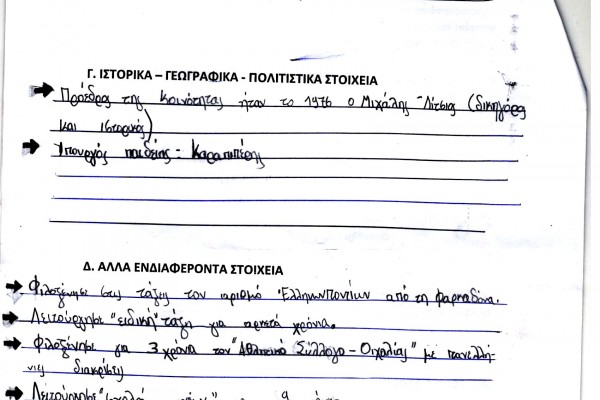 Γ. ΙΣΤΟΡΙΚΑ – ΓΕΩΓΡΑΦΙΚΑ - ΠΟΛΙΤΙΣΤΙΚΑ ΣΤΟΙΧΕΙΑ
Πρόεδρος της Κοινότητας ήταν το 1976 ο Μιχάλης Λίτσιος (δικηγόρος
και ιστορικός)
Υπουργός παιδείας:
Δ. ΑΛΛΑ ΕΝΔΙΑΦΕΡΟΝΤΑ ΣΤΟΙΧΕΙΑ
Φιλοξένησε στις τάξεις του αριθμό Ελληνοποντίων από τη Φαρκαδόνα.
Λειτούργησε "ειδική" τάξη για αρκετά χρόνια.
Φιλοξένησε για 3 χρόνια τον "Αθλητικό Σύλλογο - Οιχαλίας" με πανελλή-
νιες διακρίσεις
Λειτούργησε